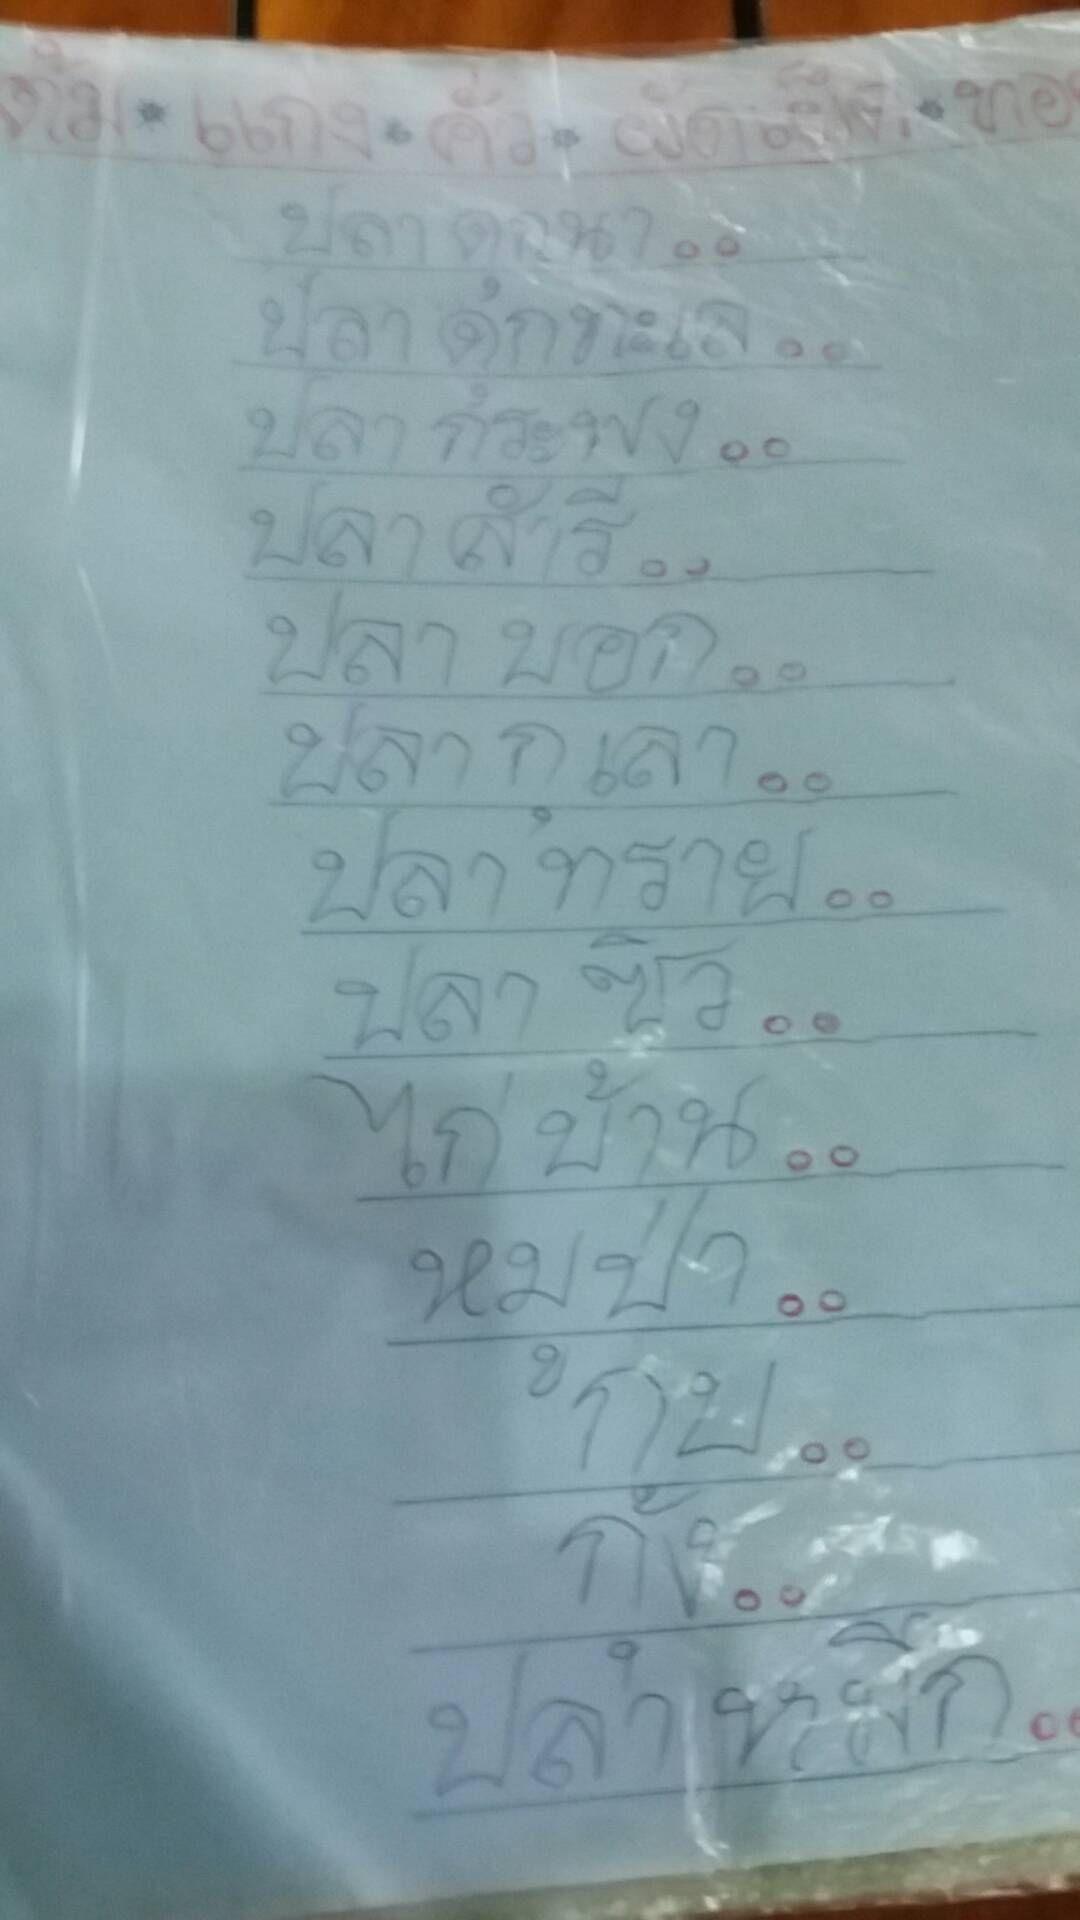 ต้ม • แกง • คั่ว • ผัดเผ็ด • ทอด
ปลา ดุกนา..
ปลา ดุกทะเล..
ปลา กระพง..
ปลา สำรี..
ปลา บอก..
ปลา กเลา..
ปลา ทราย..
ปลา ซิว..
ไก่ บ้าน..
หมูป่า..
กบ..
กุ้ง..
ปลา หมึก..